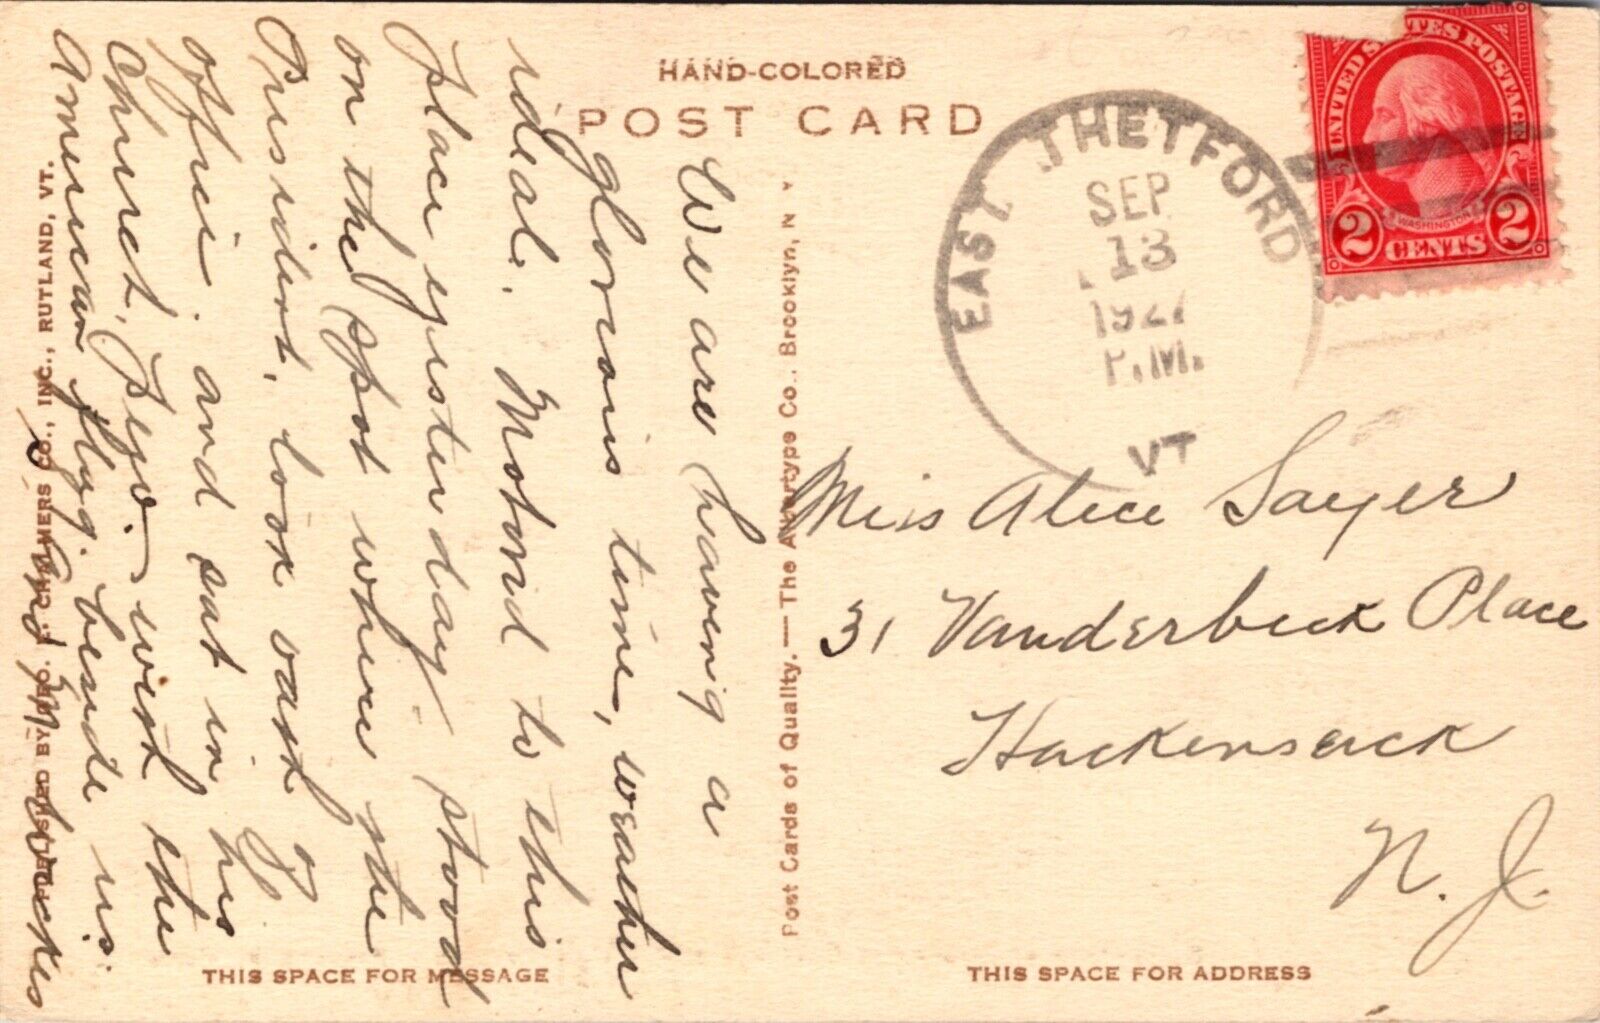 HAND-COLORED
POST CARD
EAST THETFORD
SEP
13
1927
P.M.
VT
UNITED STATES POSTAGE
WASHINGTON
2 CENTS 2
We are having a
glorious time, weather
ideal. Motored to this
place yesterday stood
on the spot where the
President, took oath of
office. and sat in his
Church, Pew. with the
American flag. beside us.
and M.
Miss Alice Sayer
31 Vanderbeck Place
Hackensack
N. J.
PUBLISHED BY GEO. E. CHALMERS CO., INC., RUTLAND, VT.
Post Cards of Quality. — The Albertype Co., Brooklyn, N Y
THIS SPACE FOR MESSAGE
THIS SPACE FOR ADDRESS